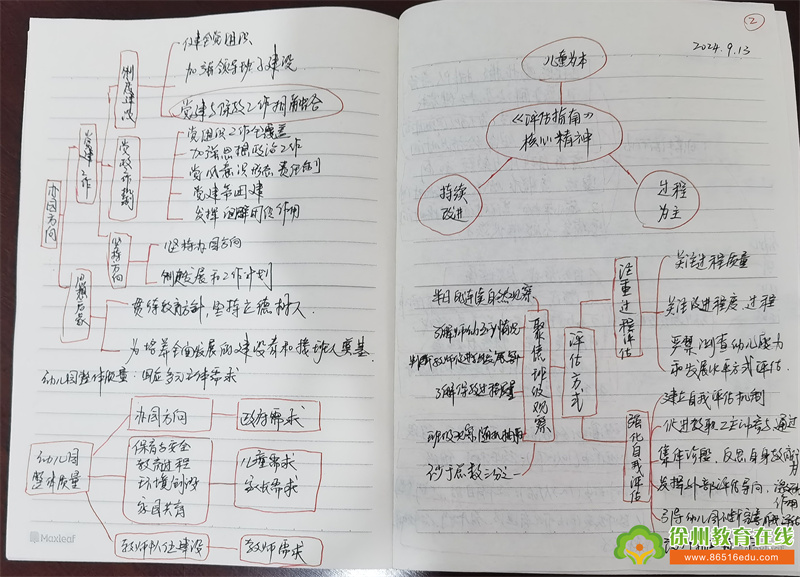 健全党组织
加强领导班子建设
制度建设
党建与保教工作相融合
党组织工作全覆盖
党建工作
加强思想政治工作
党政工作机制
党风意识形态责任制
党建带团建
办园方向
发挥
作用
坚持办园方向
坚持方向
制定发展和工作计划
贯彻教育方针,坚持立德树人
为培养全面发展的建设者和接班人奠基
幼儿园整体质量:回应多元主体需求
办园方向
政府需求
保育与安全
教育过程
环境创设
家园共育
幼儿园
整体质量
儿童需求
家长需求
教师队伍建设
教师需求
Maxleaf
②
2024.9.13
儿童为本
《评估指南》
核心精神
持续
改进
过程
为主
注重过程评估
关注过程质量
关注改进程度、过程
严禁测查幼儿能力
和发展水平方式评估
评估方式
聚焦班级观察
半日的连续自然观察
了解师幼互动情况
了解保教过程质量
不少于总数三分之一
强化自我评估
建立自我评估机制
促进教职工主动参与,通过
集体诊断、反思自身
发挥外部评估导向、激励
作用
引导幼儿园
徐州教育在线
www.86516edu.com